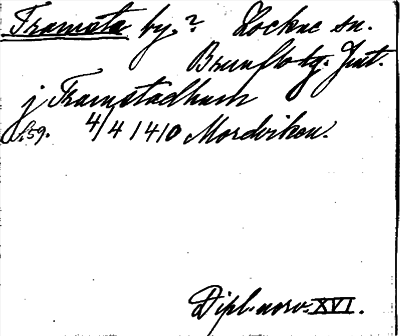 Framsta by.? Lockne sn.
Brunflo tg. Jmt.
j Framstadhum
s. 59. 4/4 1410 Mordviken.
Dipl. norv. XVI.